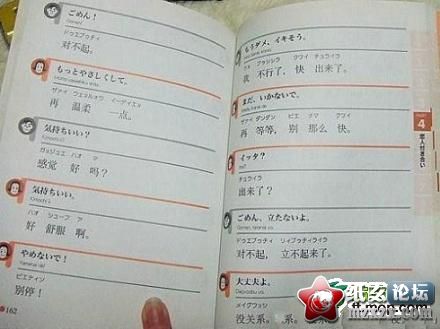 ごめん！
Gomen!
ドゥエブゥチィ
对不起。
もっとやさしくして。
Motto yasashiku shite.
ヅァイ ウェンルォウ イーディエェ
再 温柔 一点。
気持ちいい？
Kimochiii?
ガンジュエ ハオ マ
感觉 好 吗？
気持ちいい。
Kimochiii.
ハオ シューフ ア
好 舒服 啊。
やめないで！
Yamenai de!
ビエティン
别停！
162
もうダメ、イキそう。
我 不行了，快 出来了。
まだ、いかないで。
ヅァイ ダンダン ビエ ナマ クワイ
再 等等，别 那么 快。
イッタ？
Itta?
チュライラ
出来了？
ごめん、立たないよ。
Gomen, tatanai yo.
ドゥエブゥチィ リィブゥチィライラ
对不起，立不起来了。
大丈夫よ。
Daijoobu yo.
メイグワンシ
没关系。
PART
4
恋人付き合い
纸玄论坛